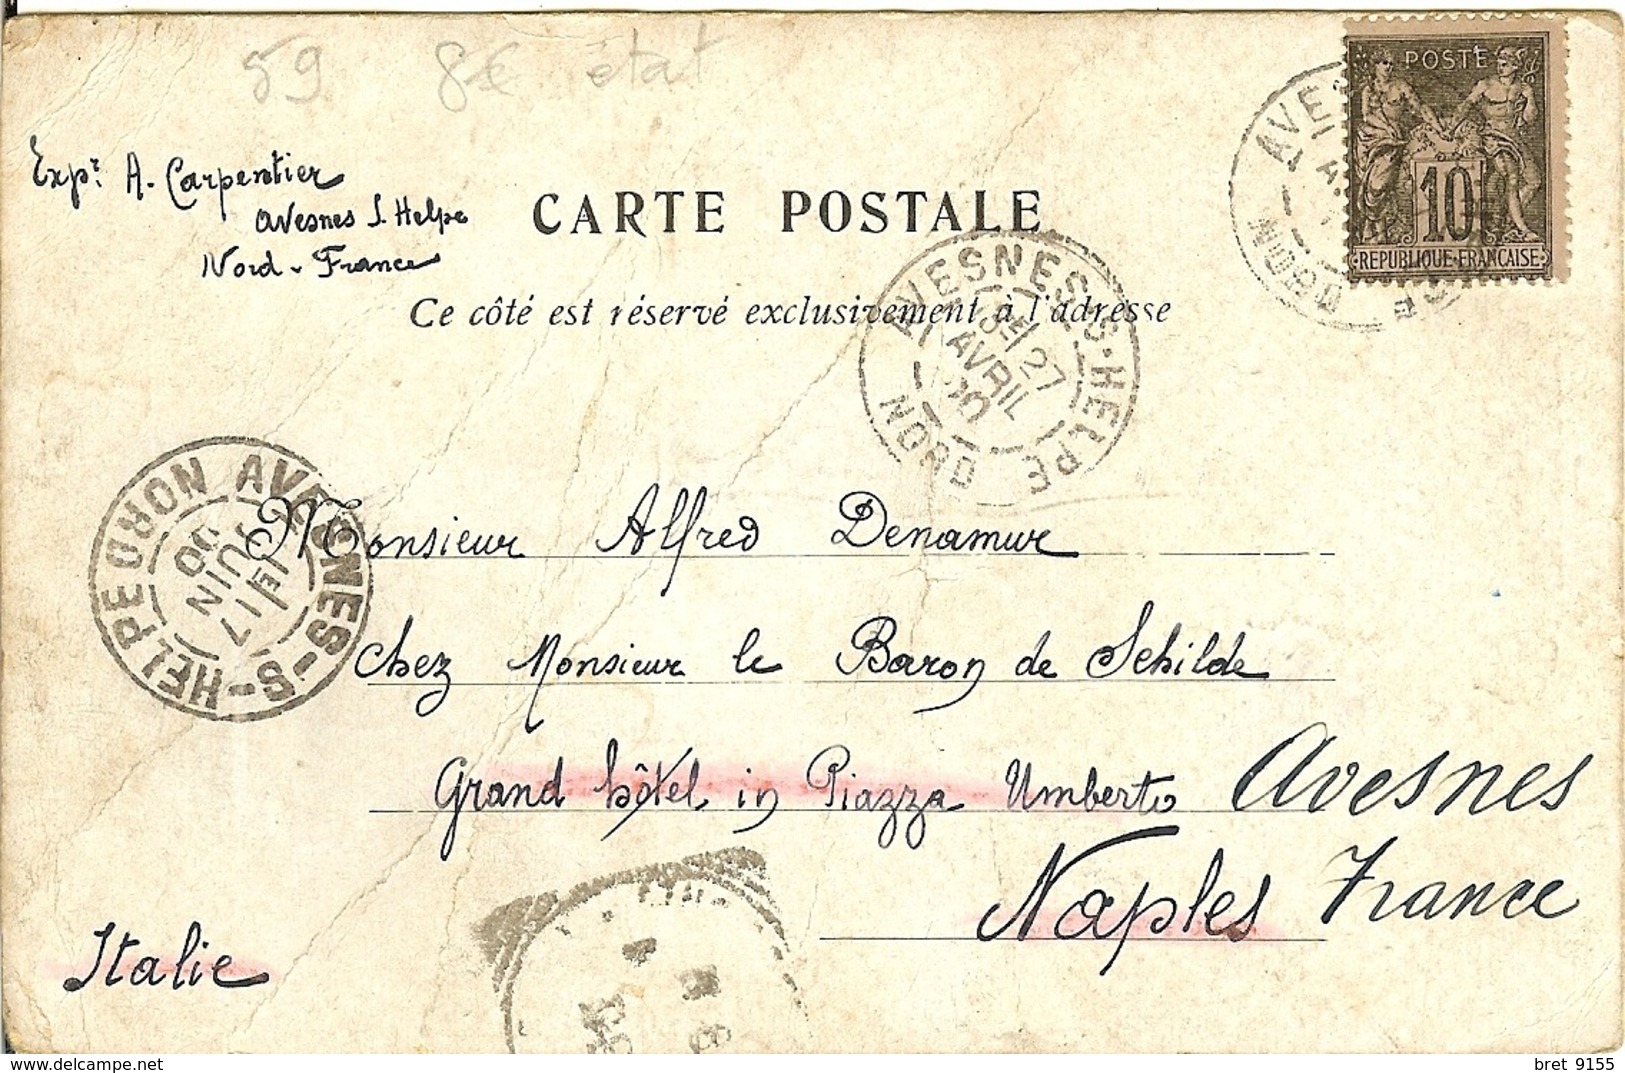 59 8€ état
POSTE
10
REPUBLIQUE FRANÇAISE
NORD
Expr A. Carpentier
Avesnes S. Helpe
Nord - France
CARTE POSTALE
Ce côté est réservé exclusivement à l'adresse
AVESNES-S-HELPE
27
AVRIL
00
NORD
AVESNES-S-HELPE NORD
17
JUIN
00
Monsieur Alfred Denamur
chez Monsieur le Baron de Schilde
Grand hôtel in Piazza Umberto Avesnes
Naples France
Italie
www.delcampe.net
bret 9155